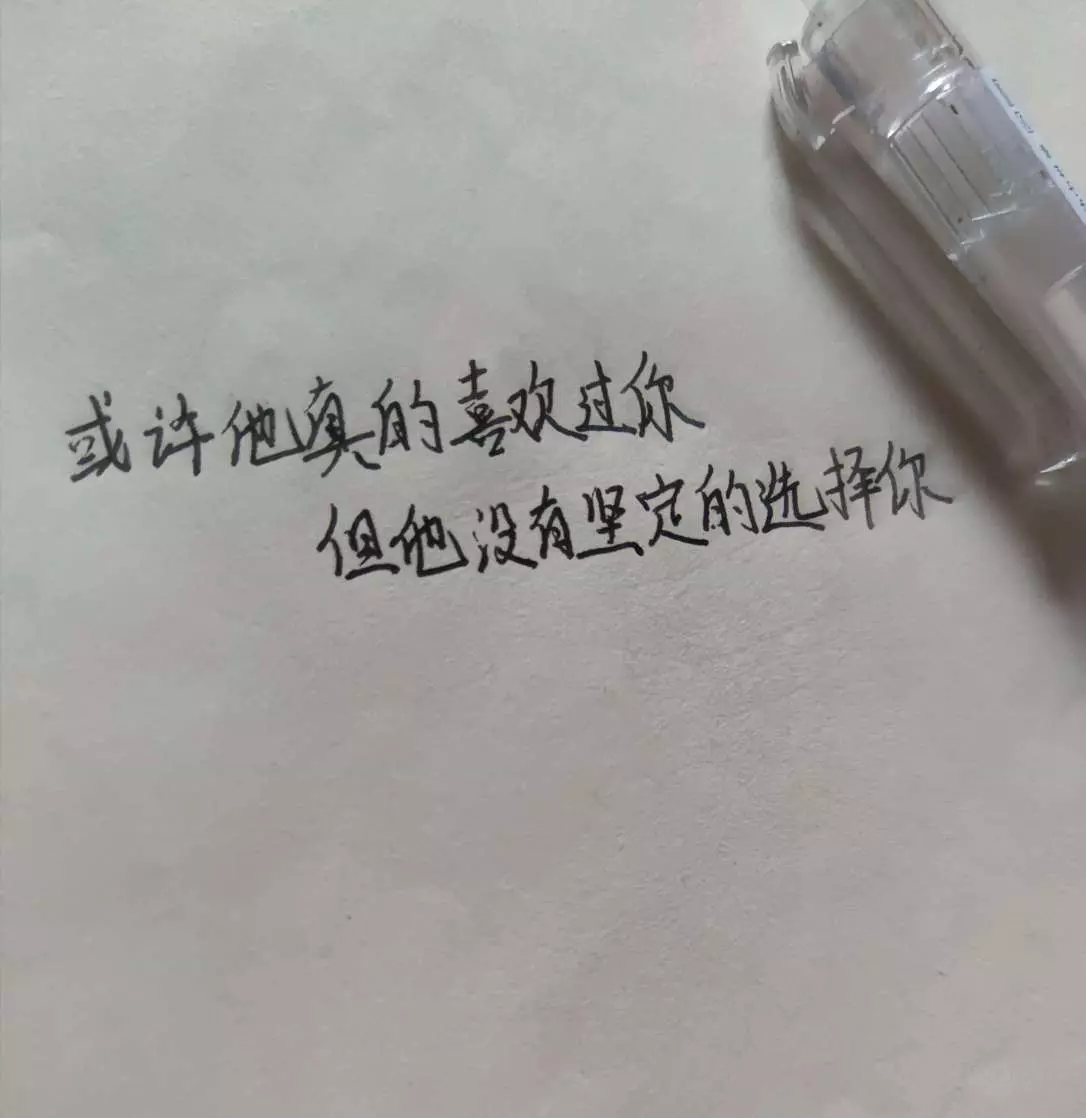 或许他真的喜欢过你
但他没有坚定的选择你